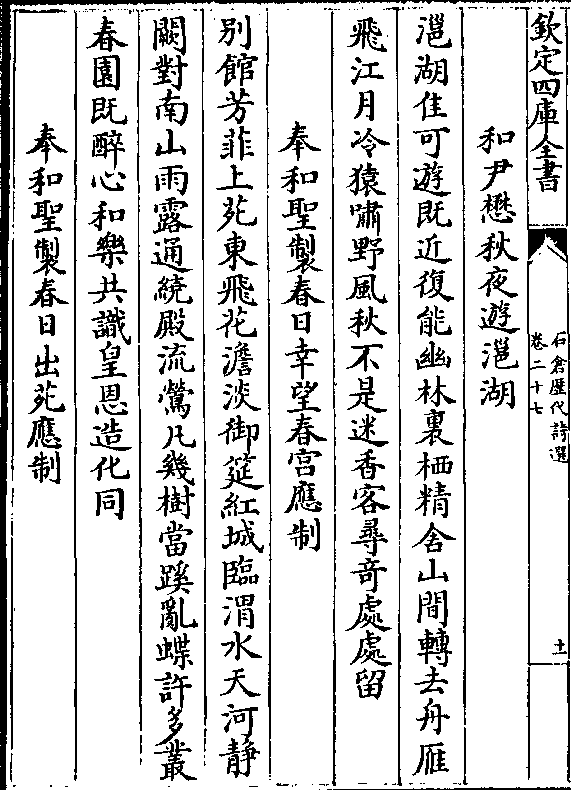 欽定四庫全書
石倉歴代詩選
卷二十七
十一
和尹懋秋夜遊㴩湖
㴩湖佳可遊既近復能幽林裏栖精舍山間轉去舟雁
飛江月冷猿嘯野風秋不是迷香客尋竒處處留
奉和聖製春日幸望春宫應制
别館芳菲上苑東飛花澹淡御筵紅城臨渭水天河静
闕對南山雨露通繞殿流鶯凡幾樹當蹊亂蝶許多叢
春園既醉心和樂共識皇恩造化同
奉和聖製春日出苑應制